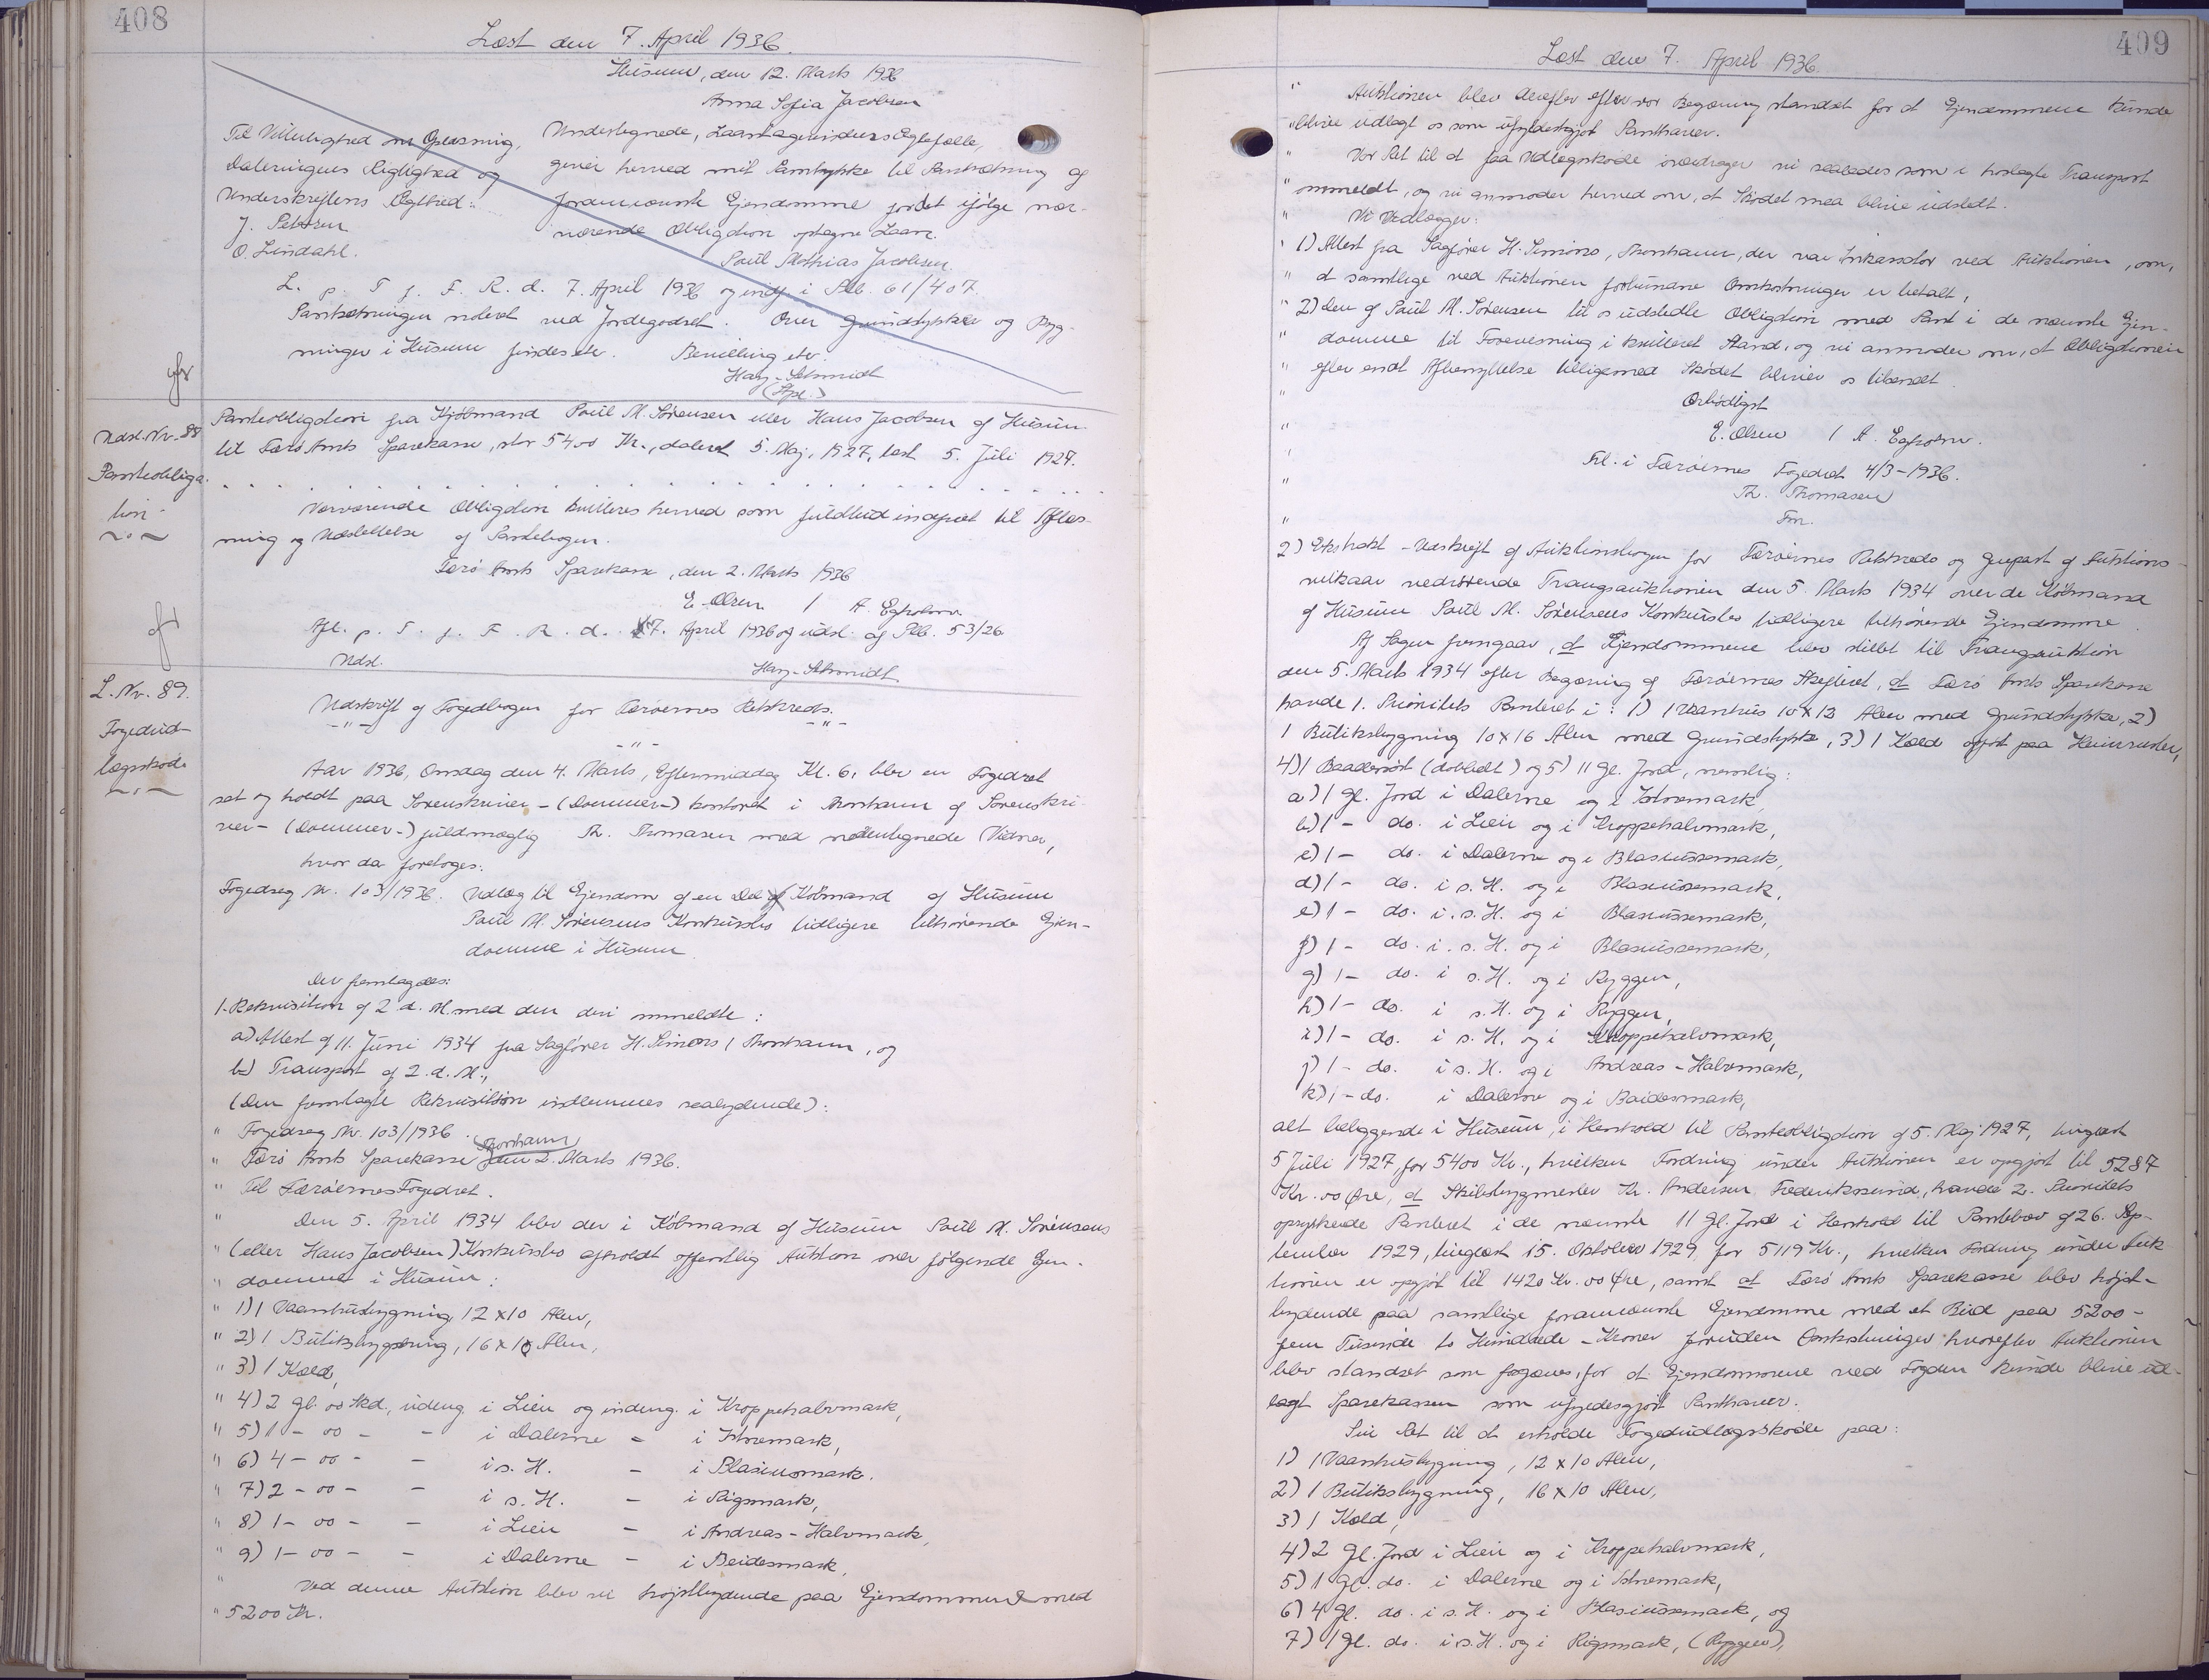 408
Læst den 7. April 1936.
Húsum, den 12. Marts 1936
Anna Sofia Jacobsen
Til Vitterlighed om Oplæsning,
Dateringens Rigtighed og
Underskriftens Ægthed:
J. Petersen
O. Lindahl.
Undertegnede, Laantagerindens Ægtefælle,
giver herved mit Samtykke til Pantsætning af
forannævnte Ejendomme for det ifølge nær-
værende Obligation optagne Laan.
Poul Mathias Jacobsen.
L. p. T. f. F. R. d. 7. April 1936 og indf. i Plb. 61/407
Pantsætningen noteret ved Jordegodset. Over Grundstykker og Byg-
ninger i Húsum findes etc. Bevilling etc.
Hay-Schmidt
(Spl.)
Udsl. Nr. 88
Panteobliga-
tion
Panteobligation fra Kjøbmand Poul M. Sørensen eller Hans Jacobsen af Húsum
til Færø Amts Sparekasse, stor 5400 Kr., dateret 5. Maj, 1927, læst 5. Juli 1927.
Nærværende Obligation kvitteres herved som fuldtud indfriet til Aflæs-
ning og Udslettelse af Pantebogen.
Færø Amts Sparekasse, den 2. Marts 1936
E. Olsen / A. Egholm.
Afl. p. T. f. F. R. d. 7. April 1936 og udsl. af Plb. 53/26
Udsl.
Hay-Schmidt
L. Nr. 89.
Fogedud-
lægsskøde
Udskrift af Fogedbogen for Færøernes Retskreds.
-"- -"-
-"-
Aar 1936, Onsdag den 4. Marts, Eftermiddag Kl. 6, blev en Fogedret
sat og holdt paa Sorenskriver- (Dommer-) kontoret i Thorshavn af Sorenskri-
ver- (Dommer-) fuldmægtig Th. Thomasen med nedentegnede Vidner,
hvor da foretoges:
Fogedsag Nr. 103/1936. Udlæg til Ejendom af en Del af Købmand af Húsum
Poul M. Sørensens Konkursbo tidligere tilhørende Ejen-
domme i Húsum
Der fremlagdes:
1. Rekvisition af 2 d. M. med den deri ommeldte:
a) Attest af 11. Juni 1934 fra Sagfører H. Simons / Thorshavn, og
b) Transport af 2. d. M.,
(Den fremlagte Rekvisition indlemmes saalydende):
" Fogedsag Nr. 103/1936.
Thorshavn
" Færø Amts Sparekasse den 2. Marts 1936.
" Til Færøernes Fogedret.
" Den 5. April 1934 blev der i Købmand af Húsum Poul M. Sørensens
" (eller Hans Jacobsen) Konkursbo afholdt offentlig Auktion over følgende Ejen-
" domme i Húsum:
" 1) 1 Vaanhusbygning 12 x 10 Alen,
" 2) 1 Butiksbygning, 16 x 10 Alen,
" 3) 1 Kæld,
" 4) 2 Gl. oo Skd., udeng. i Lien og indeng. i Kroppehalvmark,
" 5) 1 - oo - - i Dalerne - i Istremark,
" 6) 4 - oo - - i s. H. - i Blasiusmark.
" 7) 2 - oo - - i s. H. - i Rigsmark,
" 8) 1 - oo - - i Lien - i Andreas-Halvmark,
" 9) 1 - oo - - i Dalerne - i Beidesmark,
" Ved denne Auktion blev vi højstbydende paa Ejendommene med
" 5200 Kr.
409
Læst den 7. April 1936.
" Auktionen blev derefter efter vor Begæring standset for at Ejendommene kunde
" blive udlagt os som ufyldestgjort Panthaver.
" Vor Ret til at faa Udlægsskøde overdrager vi saaledes som i hoslagte Transport
" ommeldt, og vi anmoder herved om, at Skødet maa blive udstedt.
" Vi Vedlægger:
" 1) Attest fra Sagfører H. Simons, Thorshavn, der var Inkassator ved Auktionen, om,
" at samtlige ved Auktionen forbundne Omkostninger er betalt,
" 2) Den af Poul M. Sørensen til os udstedte Obligation med Pant i de nævnte Ejen-
" domme til Forevisning i kvitteret Stand, og vi anmoder om, at Obligationen
" efter endt Afbenyttelse tilligemed Skødet bliver os tilsendt.
" Ærbødigst
" E. Olsen / A. Egholm.
" Frl. i Færøernes Fogedret 4/3-1936.
" Th. Thomasen
" Fm.
2) Ekstrakt-Udskrift af Auktionsbogen for Færøernes Retskreds og Genpart af Auktions-
vilkaar vedrørende Tvangsauktionen den 5. Marts 1934 over de Købmand
af Húsum Poul M. Sørensens Konkursbo tidligere tilhørende Ejendomme.
Af Sagen fremgaar, at Ejendommene blev stillet til Tvangsauktion
den 5. Marts 1934 efter Begæring af Færøernes Skifteret, at Færø Amts Sparekasse
havde 1. Prioritets Panteret i: 1) 1 Vaanhus 10 x 12 Alen med Grundstykke, 2)
1 Butiksbygning 10 x 16 Alen med Grundstykke, 3) 1 Kæld opført paa Heimrusten,
4) 1 Baadenøst (dobbelt) og 5) 11 Gl. Jord, nemlig:
a) 1 Gl. Jord i Dalerne og i Istremark,
b) 1 - do. i Lien og i Kroppehalvmark,
c) 1 - do. i Dalerne og i Blasiussemark,
d) 1 - do. i s. H. og i Blasiussemark,
e) 1 - do. i s. H. og i Blasiussemark,
f) 1 - do. i s. H. og i Blasiussemark,
g) 1 - do. i s. H. og i Ryggen,
h) 1 - do. i s. H. og i Ryggen,
i) 1 - do. i s. H. og i Kroppehalvmark,
j) 1 - do. i s. H. og i Andreas-Halvmark,
k) 1 - do. i Dalerne og i Baidesmark,
alt beliggende i Húsum, i Henhold til Panteobligation af 5. Maj 1927, tinglæst
5 Juli 1927, for 5400 Kr., hvilken Fordring under Auktionen er opgjort til 5287
Kr. oo Øre, at Skibsbygmester Kr. Andersen Frederikssund, havde 2. Prioritets
oprykkende Panteret i de nævnte 11 Gl. Jord i Henhold til Pantebrev af 26. Sep-
tember 1929, tinglæst 15. Oktober 1929 for 5119 Kr., hvilken Fordring under Auk-
tionen er opgjort til 1420 Kr. oo Øre, samt at Færø Amts Sparekasse blev højst-
bydende paa samtlige forannævnte Ejendomme med et Bud paa 5200 -
fem Tusinde to Hundrede - Kroner foruden Omkostninger hvorefter Auktionen
blev standset som forgæves, for at Ejendommene ved Fogden kunde blive ud-
lagt Sparekassen som ufyldestgjort Panthaver.
Sin Ret til at erholde Fogedudlægsskøde paa:
1) 1 Vaanhusbygning, 12 x 10 Alen,
2) 1 Butiksbygning, 16 x 10 Alen,
3) 1 Kæld,
4) 2 Gl. Jord i Lien og i Kroppehalvmark,
5) 1 Gl. do. i Dalerne og i Istremark,
6) 4 Gl. do. i s. H. og i Blasiussemark, og
7) 1 Gl. do. i s. H. og i Rigsmark, (Ryggen),